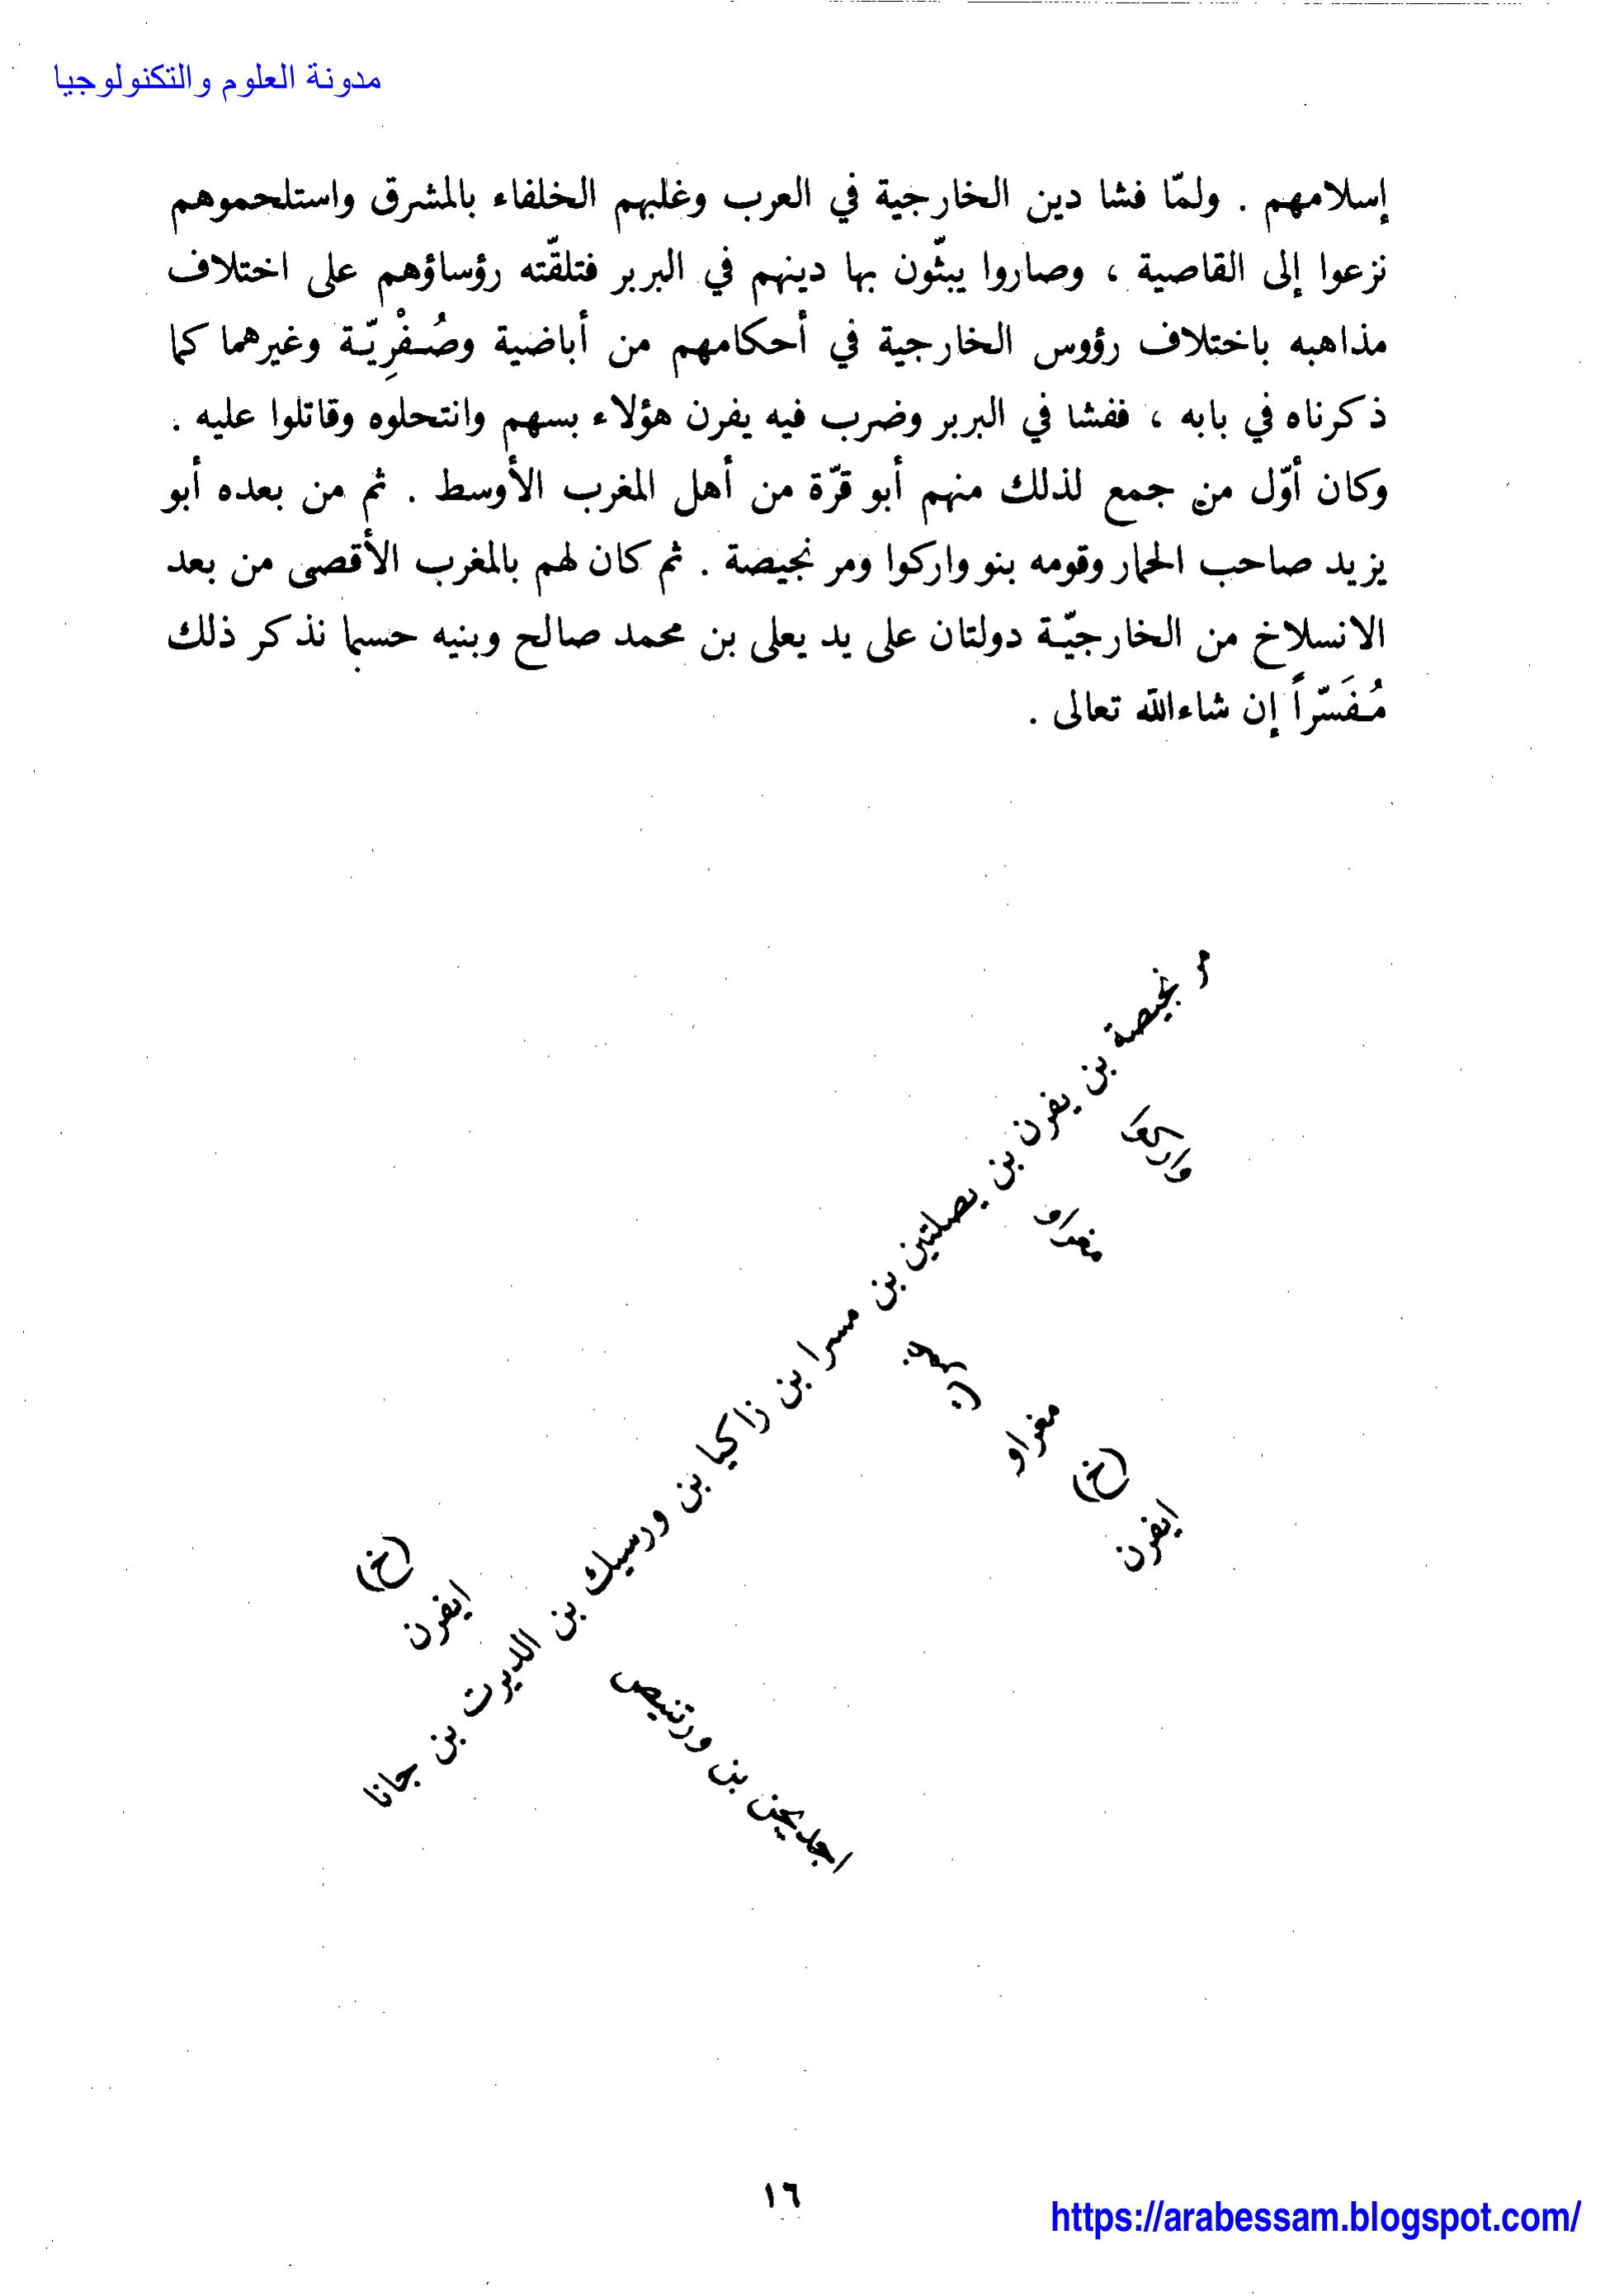 مدونة العلوم والتكنولوجيا
إسلامهم . ولمّا فشا دين الخارجية في العرب وغلبهم الخلفاء بالمشرق واستلحموهم
نزعوا إلى القاصية ، وصاروا يبثّون بها دينهم في البربر فتلقّته رؤساؤهم على اختلاف
مذاهبه باختلاف رؤوس الخارجية في أحكامهم من أباضية وصُفْرِيّة وغيرهما كما
ذكرناه في بابه ، ففشا في البربر وضرب فيه يفرن هؤلاء بسهم وانتحلوه وقاتلوا عليه .
وكان أوّل من جمع لذلك منهم أبو قرّة من أهل المغرب الأوسط . ثم من بعده أبو
يزيد صاحب الحمار وقومه بنو واركوا ومر نجيصة . ثم كان لهم بالمغرب الأقصى من بعد
الانسلاخ من الخارجيّة دولتان على يد يعلى بن محمد صالح وبنيه حسبما نذكر ذلك
مُفَسّراً إن شاءالله تعالى .
مر نجيصة بن يفرن بن يصلتين بن مسرا بن زاكيا بن ورسيك بن الديرت بن جانا
مغراو
مغراو
(خ)
ايفرن
(خ)
ايفرن
اجديجن بن ورتنيص
١٦
https://arabessam.blogspot.com/